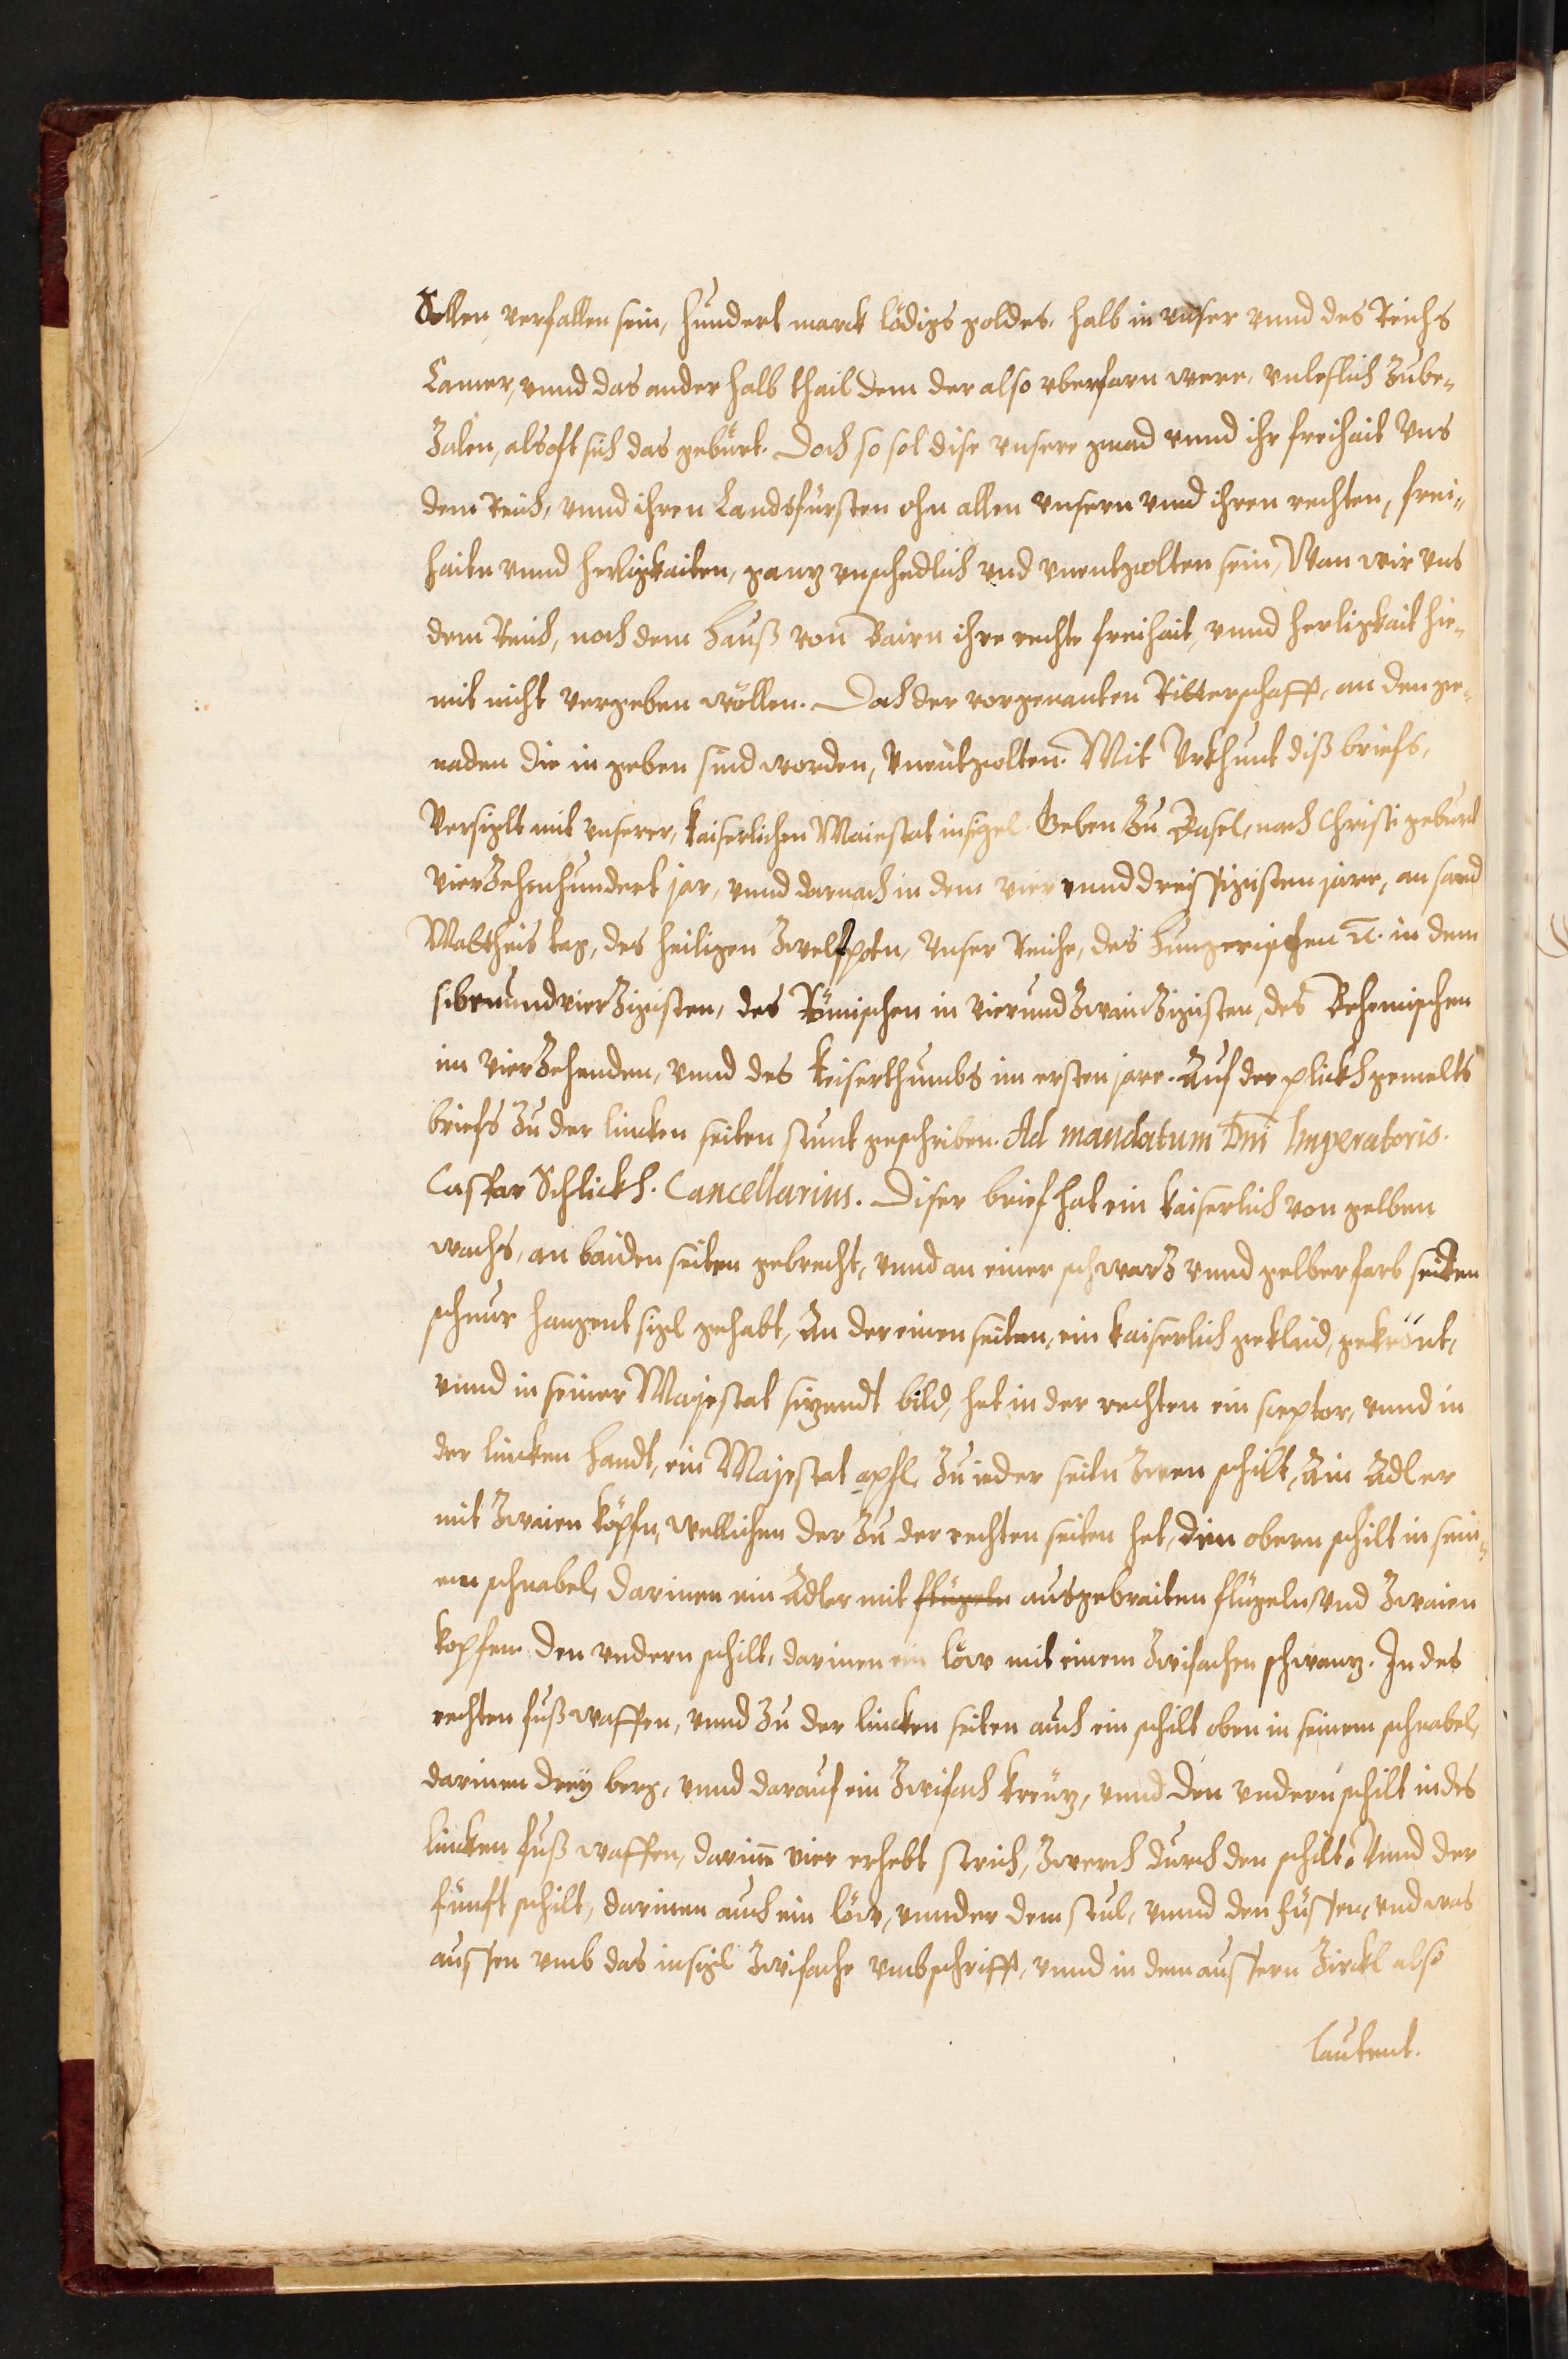 Sollen verfallen sein, hundert marck lödigs goldes, halb in vnser vnnd des Reichs
Camer, vnnd das ander halb thail dem der also vberfarn were, vnleßlich zube-
zalen, alsofft sich das gebürt. Doch so sol dise vnsere gnad vnnd ihr freihait Vns
dem Reich, vnnd ihren Landsfürsten ohn allen vnsern vnnd ihren rechten, frei-
haiten vnnd herligkaiten, ganz vnschedlich vnd vnentgolten sein, Wan wir vns
dem Reich, noch dem Hauß von Bairn ihre rechte freihait, vnnd herligkait hie-
mit nicht vergeben wöllen. Doch der vorgenanten Ritterschafft, an den ge-
naden die in geben sind worden, vnentgolten. Mit Vrkhunt diß briefs,
Versiglt mit vnserer, kaiserlichen Maiestat insigel. Geben zu Basel, nach Christi geburt
vierzehenhundert jar, vnnd darnach in dem vier vnnd dreissigisten jare, an sand
Mattheis tag, des heiligen Zwelfpoten, Vnser Reiche, des Hungerischen ꝛc. in dem
sibenundvierzigisten, des Römischen in vierundzwainzigisten, des Behemischen
im vierzehenden, vnnd des keiserthumbs im ersten jare. Auf der plickh gemelts
briefs zu der lincken seiten stunt geschriben. Ad mandatum Dni Imperatoris.
Caspar Schlickh. Cancellarius. Diser brief hat ein kaiserlich von gelben
wachs, an baiden seiten gebrecht, vnnd an einer schwarz vnnd gelber farb seiden
schnur hangent sigl gehabt, An der einen seiten, ein kaiserlich geklaid, gekrönt,
vnnd in seiner Majestat sizendt bild, het in der rechten ein scepter, vnnd in
der lincken handt, ein Majestat apfl, Zu ieder seiten zwen schilt, Ain Adler
mit zwaien köpfn, wellichen der zu der rechten seiten het, den obern schilt in sein-
em schnabel, darinen ein Adler mit flügeln ausgebraiten flügeln vnd zwaien
kopfen. Den vndern schilt, darinen ein löw mit einem zwifachen schwanz. In des
rechten fuß waffen, vnnd zu der lincken seiten auch ein schilt oben in seinem schnabel,
darinen drey berg, vnnd darauf ein zwifach kreüz, vnnd den vndern schilt in des
lincken fuß waffen, darinn vier erhebt strich, zwerch durch den schilt. Vnnd der
fünft schilt, darinen auch ein löw, vnnder dem stul, vnnd den füssen, vnd was
aussen vmb das insigl zwifache vmbschrifft, vnnd in dem aussern zirckl also
lautent.